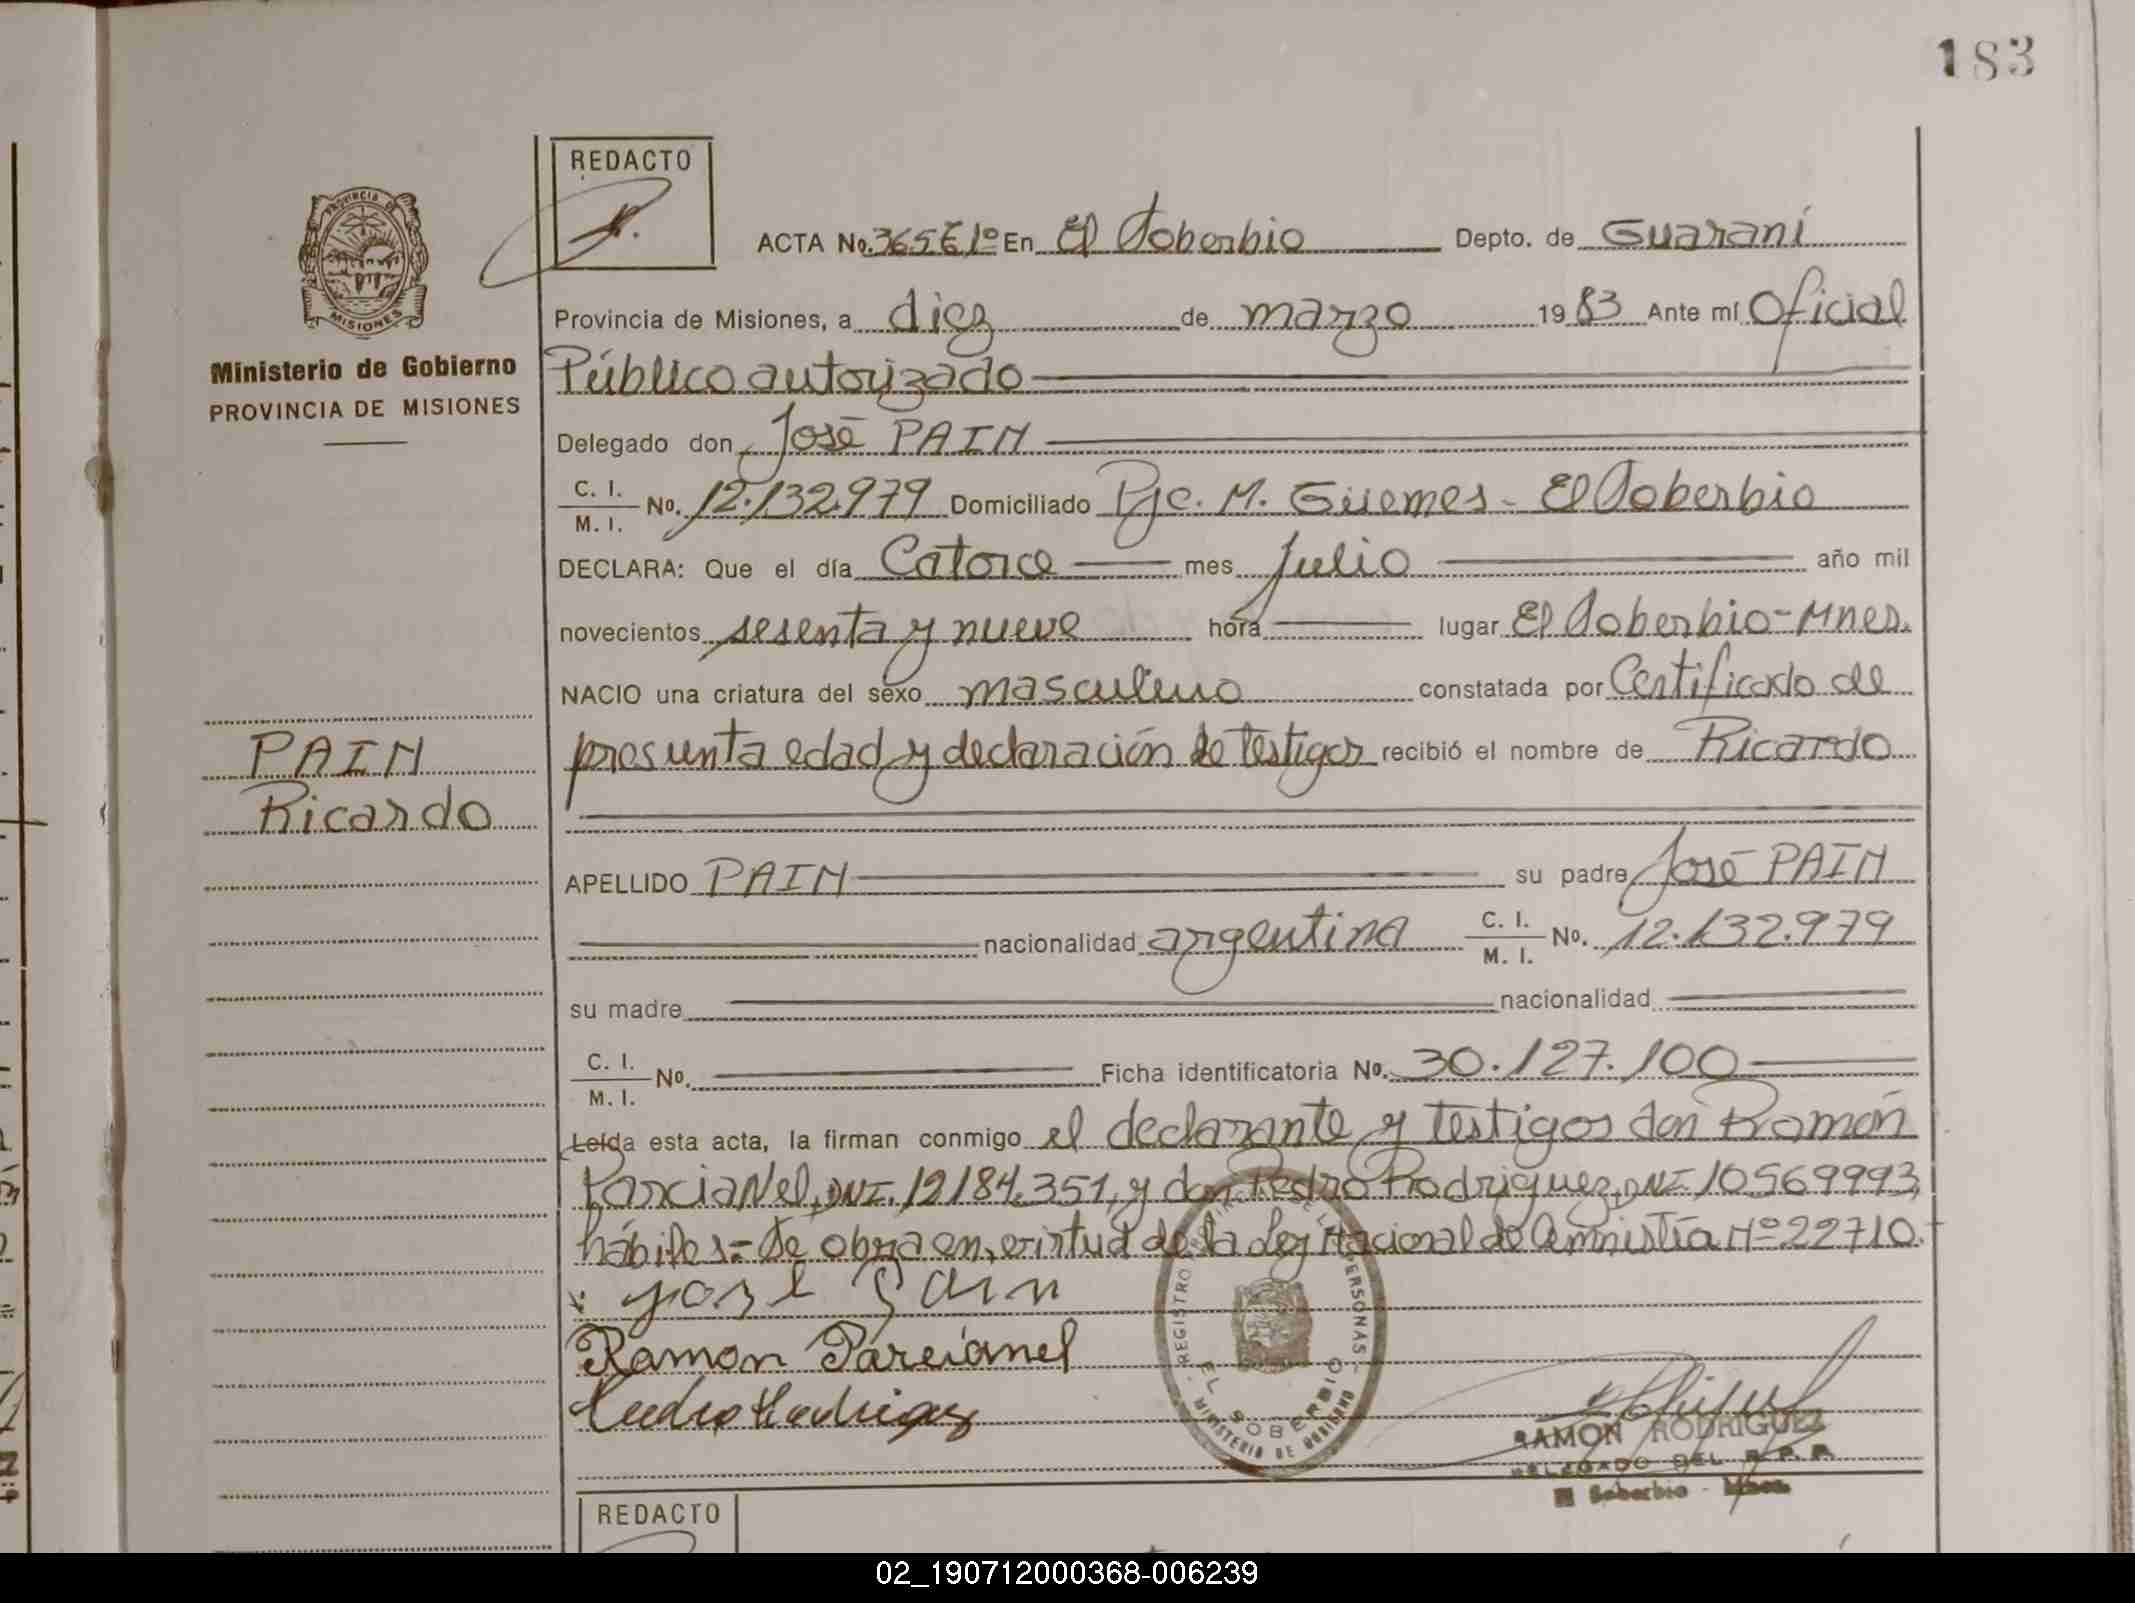 183
REDACTO
ACTA No. 365 Tº En El Soberbio Depto. de Guaraní
PROVINCIA DE
MISIONES
Provincia de Misiones, a diez de marzo 1983 Ante mí Oficial
Ministerio de Gobierno
PROVINCIA DE MISIONES
Público autorizado
Delegado don José PAIN
C. I. / M. I. No. 12.132.979 Domiciliado Pje. M. Güemes - El Soberbio
DECLARA: Que el día Catorce mes Julio año mil
novecientos sesenta y nueve hora lugar El Soberbio - Mnes.
NACIO una criatura del sexo masculino constatada por Certificado de
presunta edad y declaración de testigos recibió el nombre de Ricardo
PAIN
Ricardo
APELLIDO PAIN su padre José PAIN
nacionalidad argentina C. I. / M. I. No. 12.132.979
su madre nacionalidad
C. I. / M. I. No. Ficha identificatoria No. 30.127.100
Leída esta acta, la firman conmigo el declarante y testigos don Ramón
Parcianel, DNI. 12184.351, y don Pedro Rodriguez, DNI 10569993,
hábiles = Se obra en virtud de la Ley Nacional de Amnistía Nº 22710.
José Pain
Ramon Parcianel
Pedro Rodriguez
REGISTRO DE LAS PERSONAS
EL SOBERBIO
MINISTERIO DE GOBIERNO
RAMON RODRIGUEZ
DELEGADO DEL R. P. P.
El Soberbio - Mnes.
REDACTO
02_190712000368-006239